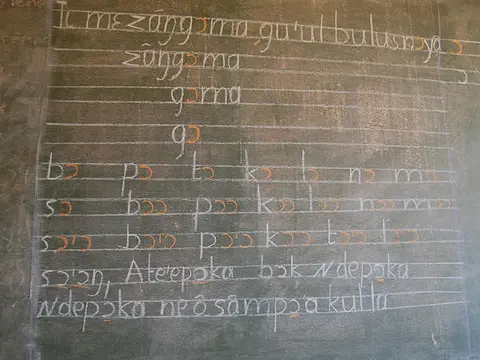 Tι mɛŋ zãŋgɔma gu'ul bulusnɔya ɔ
zãŋgɔma ɔ
gɔma
gɔ
bɔ pɔ tɔ kɔ lɔ nɔ mɔ
sɔ bɔɔ pɔɔ kɔɔ lɔɔ nɔɔ mɔɔ
sɔ'ɔ bɔ'ɔ pɔ'ɔ kɔ'ɔ tɔ'ɔ lɔ'ɔ
sɔ'ɔŋ, Ate'epɔka bɔk Ndepɔka
Ndepɔka ne õ sãmpɔa kulla